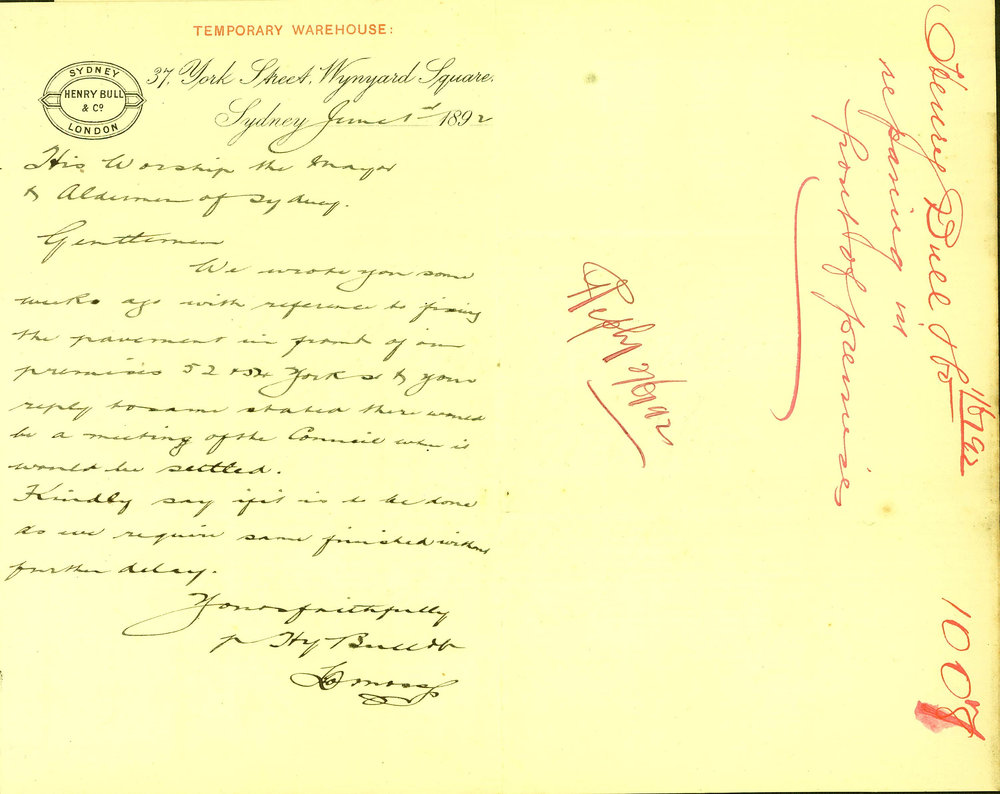 TEMPORARY WAREHOUSE:
SYDNEY
HENRY BULL
& Co
LONDON
37, York Street, Wynyard Square.
Sydney June 1st 1892
His Worship the Mayor
& Aldermen of Sydney.
Gentlemen
We wrote you some
weeks ago with reference to fixing
the pavement in front of our
premises 52 & 54 York St & your
reply to same stated there would
be a meeting of the Council when it
would be settled.
Kindly say if it is to be done
as we require same finished without
further delay.
Yours faithfully
p Hy Bull & Co
Reply 2/6/92
Henry Bull & Co 1/6/92
re paving in
front of premises